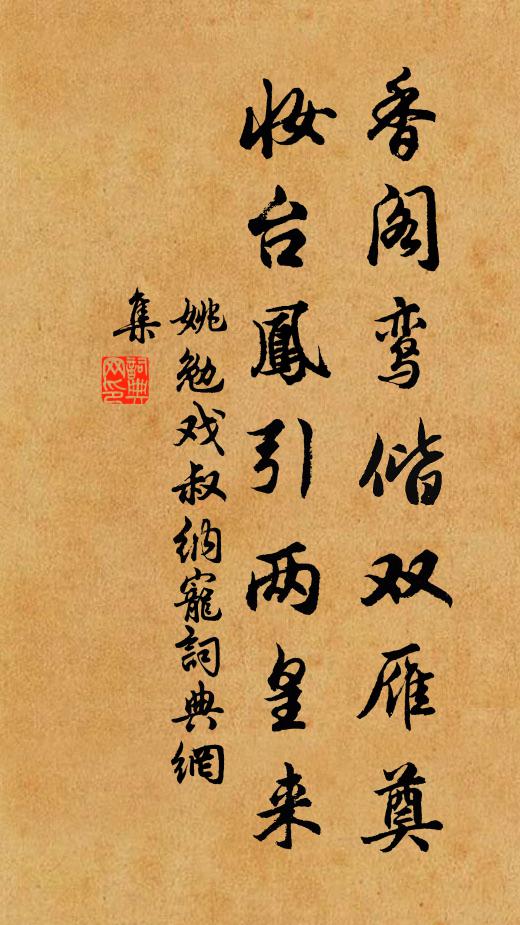 香阁鸾偕双雁奠
妆台鳳引两皇来
姚勉戏叔纳寵詞典網
集
詞典网印